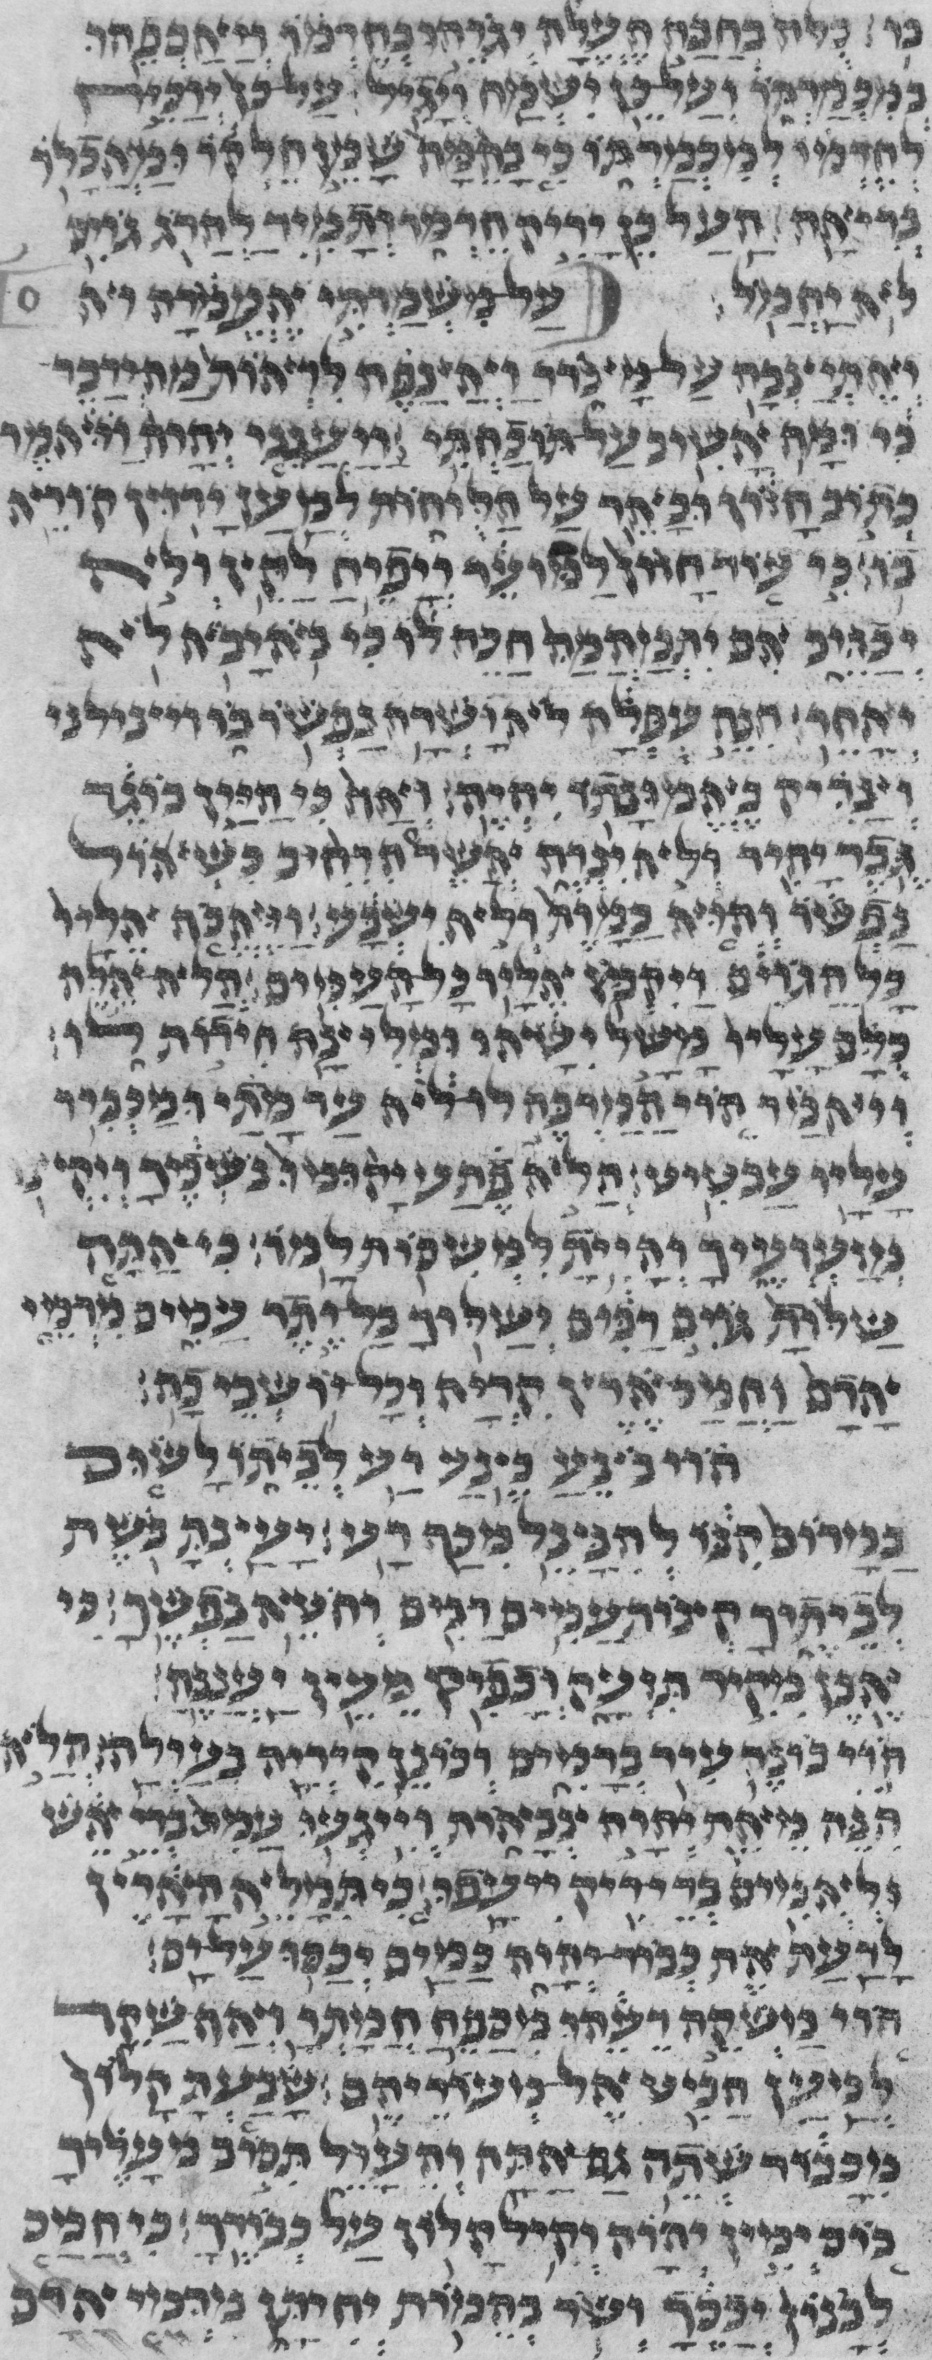 בו: כלה בחכה העלה יגרהו בחרמו ויאספהו
במכמרתו על כן ישמח ויגיל: על כן יזבח
לחרמו למכמרתו כי בהמה שמן חלקו ומאכלו
בריאה: העל כן יריק חרמו ותמיד להרג גוים
לא יחמול: על משמרתי אעמדה וא
ואתיצבה על מצור ואצפה לראות מה ידבר
בי ומה אשיב על תוכחתי: ויענני יהוה ויאמר
כתוב חזון ובאר על הלחות למען ירוץ קורא
בו: כי עוד חזון למועד ויפח לקץ ולא
יכזב אם יתמהמה חכה לו כי בא יבא לא
יאחר: הנה עפלה לא ישרה נפשו בו
וצדיק באמונתו יחיה: ואף כי היין בוגד
גבר יהיר ולא ינוה אשר הרחיב כשאול
נפשו והוא כמות ולא ישבע ויאסף אליו
כל הגוים ויקבץ אליו כל העמים: הלא אלה
כלם עליו משל ישאו ומליצה חידות לו:
ויאמר הוי המרבה לא לו עד מתי ומכביד
עליו עבטיט: הלא פתע יקומו נשכיך ויקצו
מזעזעיך והיית למשסות למו: כי אתה
שלות גוים רבים ישלוך כל יתר עמים מדמי
אדם וחמס ארץ קריה וכל ישבי בה:
הוי בצע בצע רע לביתו לשום
במרום קנו להנצל מכף רע: יעצת בשת
לביתך קצות עמים רבים וחוטא נפשך: כי
אבן מקיר תזעק וכפיס מעץ יעננה:
הוי בנה עיר בדמים וכונן קריה בעולה: הלא
הנה מאת יהוה צבאות וייגעו עמים בדי אש
ולאמים בדי ריק יעפו: כי תמלא הארץ
לדעת את כבוד יהוה כמים יכסו על ים:
הוי משקה רעהו מספח חמתך ואף שכר
למען הביט אל מעוריהם: שבעת קלון
מכבוד שתה גם אתה והערל תסוב עליך
כוס ימין יהוה וקיקלון על כבודך: כי חמס
לבנון יכסך ושד בהמות יחיתן מדמי אדם